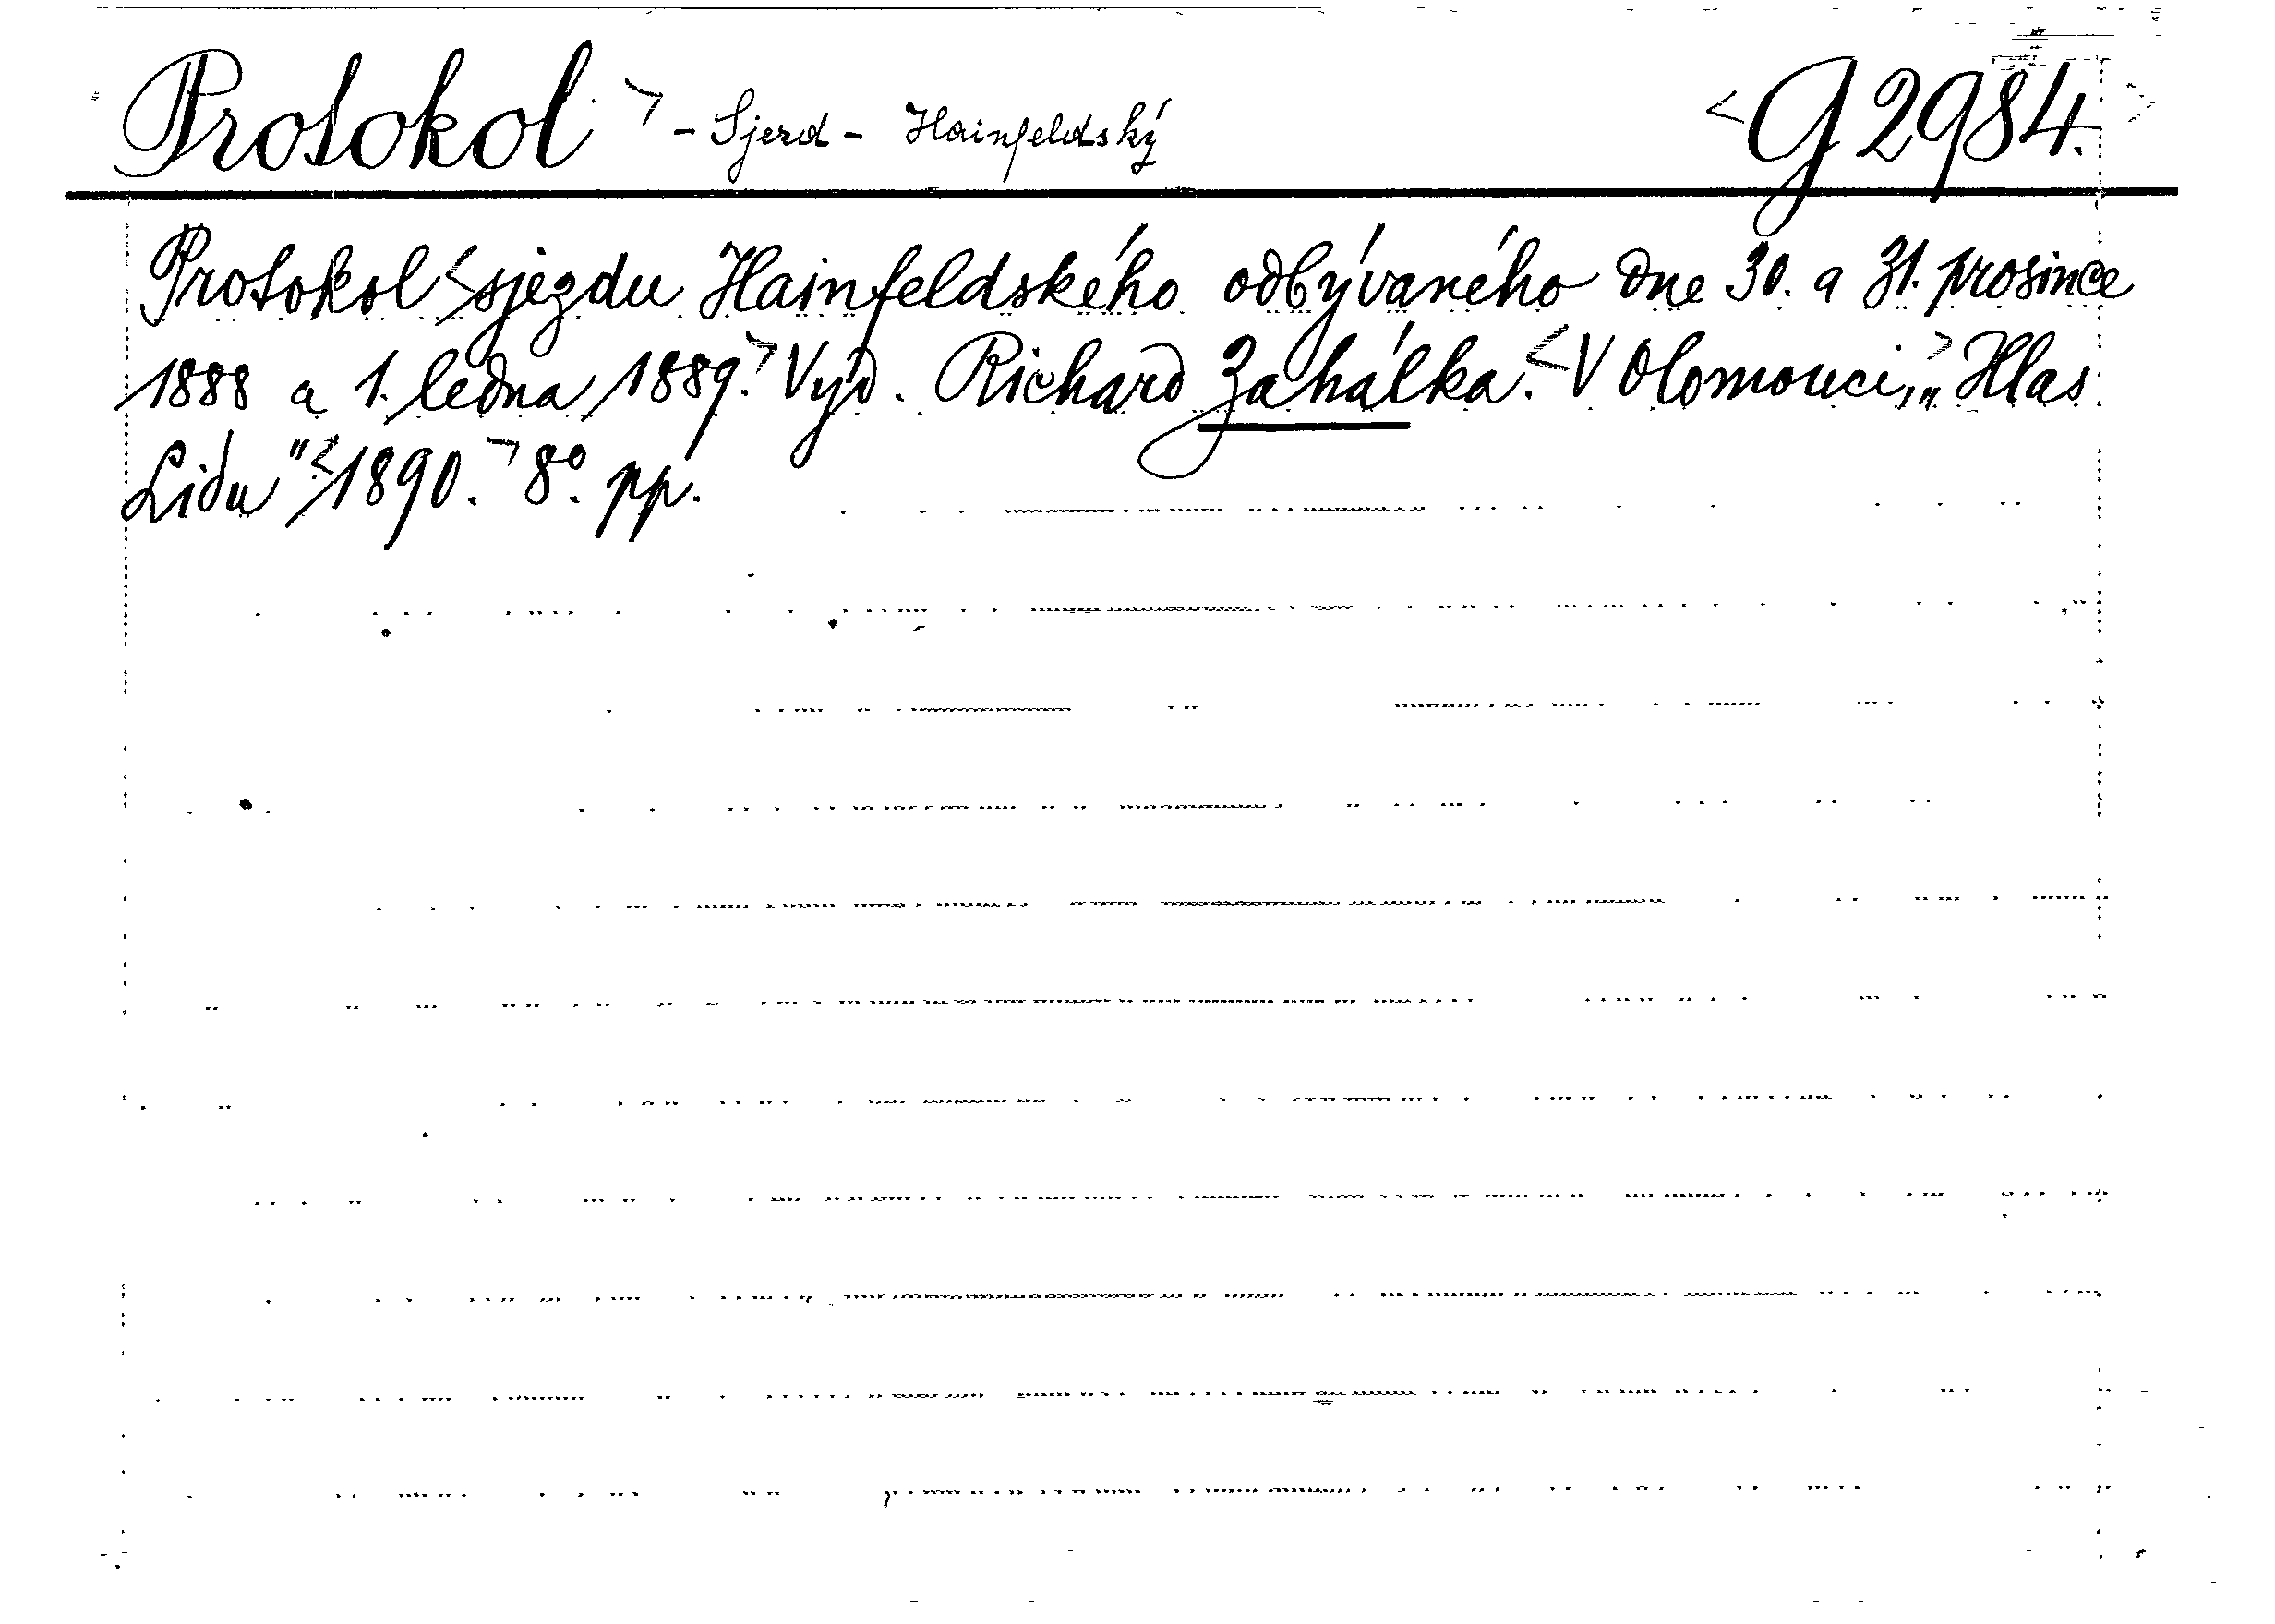 Protokol > - Sjezd - Hainfeldský < G 2984. >
Protokol < sjezdu Hainfeldského odbývaného dne 30. a 31. prosince
1888 a 1. ledna 1889. > Vyd. Richard Zahálka. < V Olomouci, > „Hlas
Lidu" < 1890. > 8°. pp.